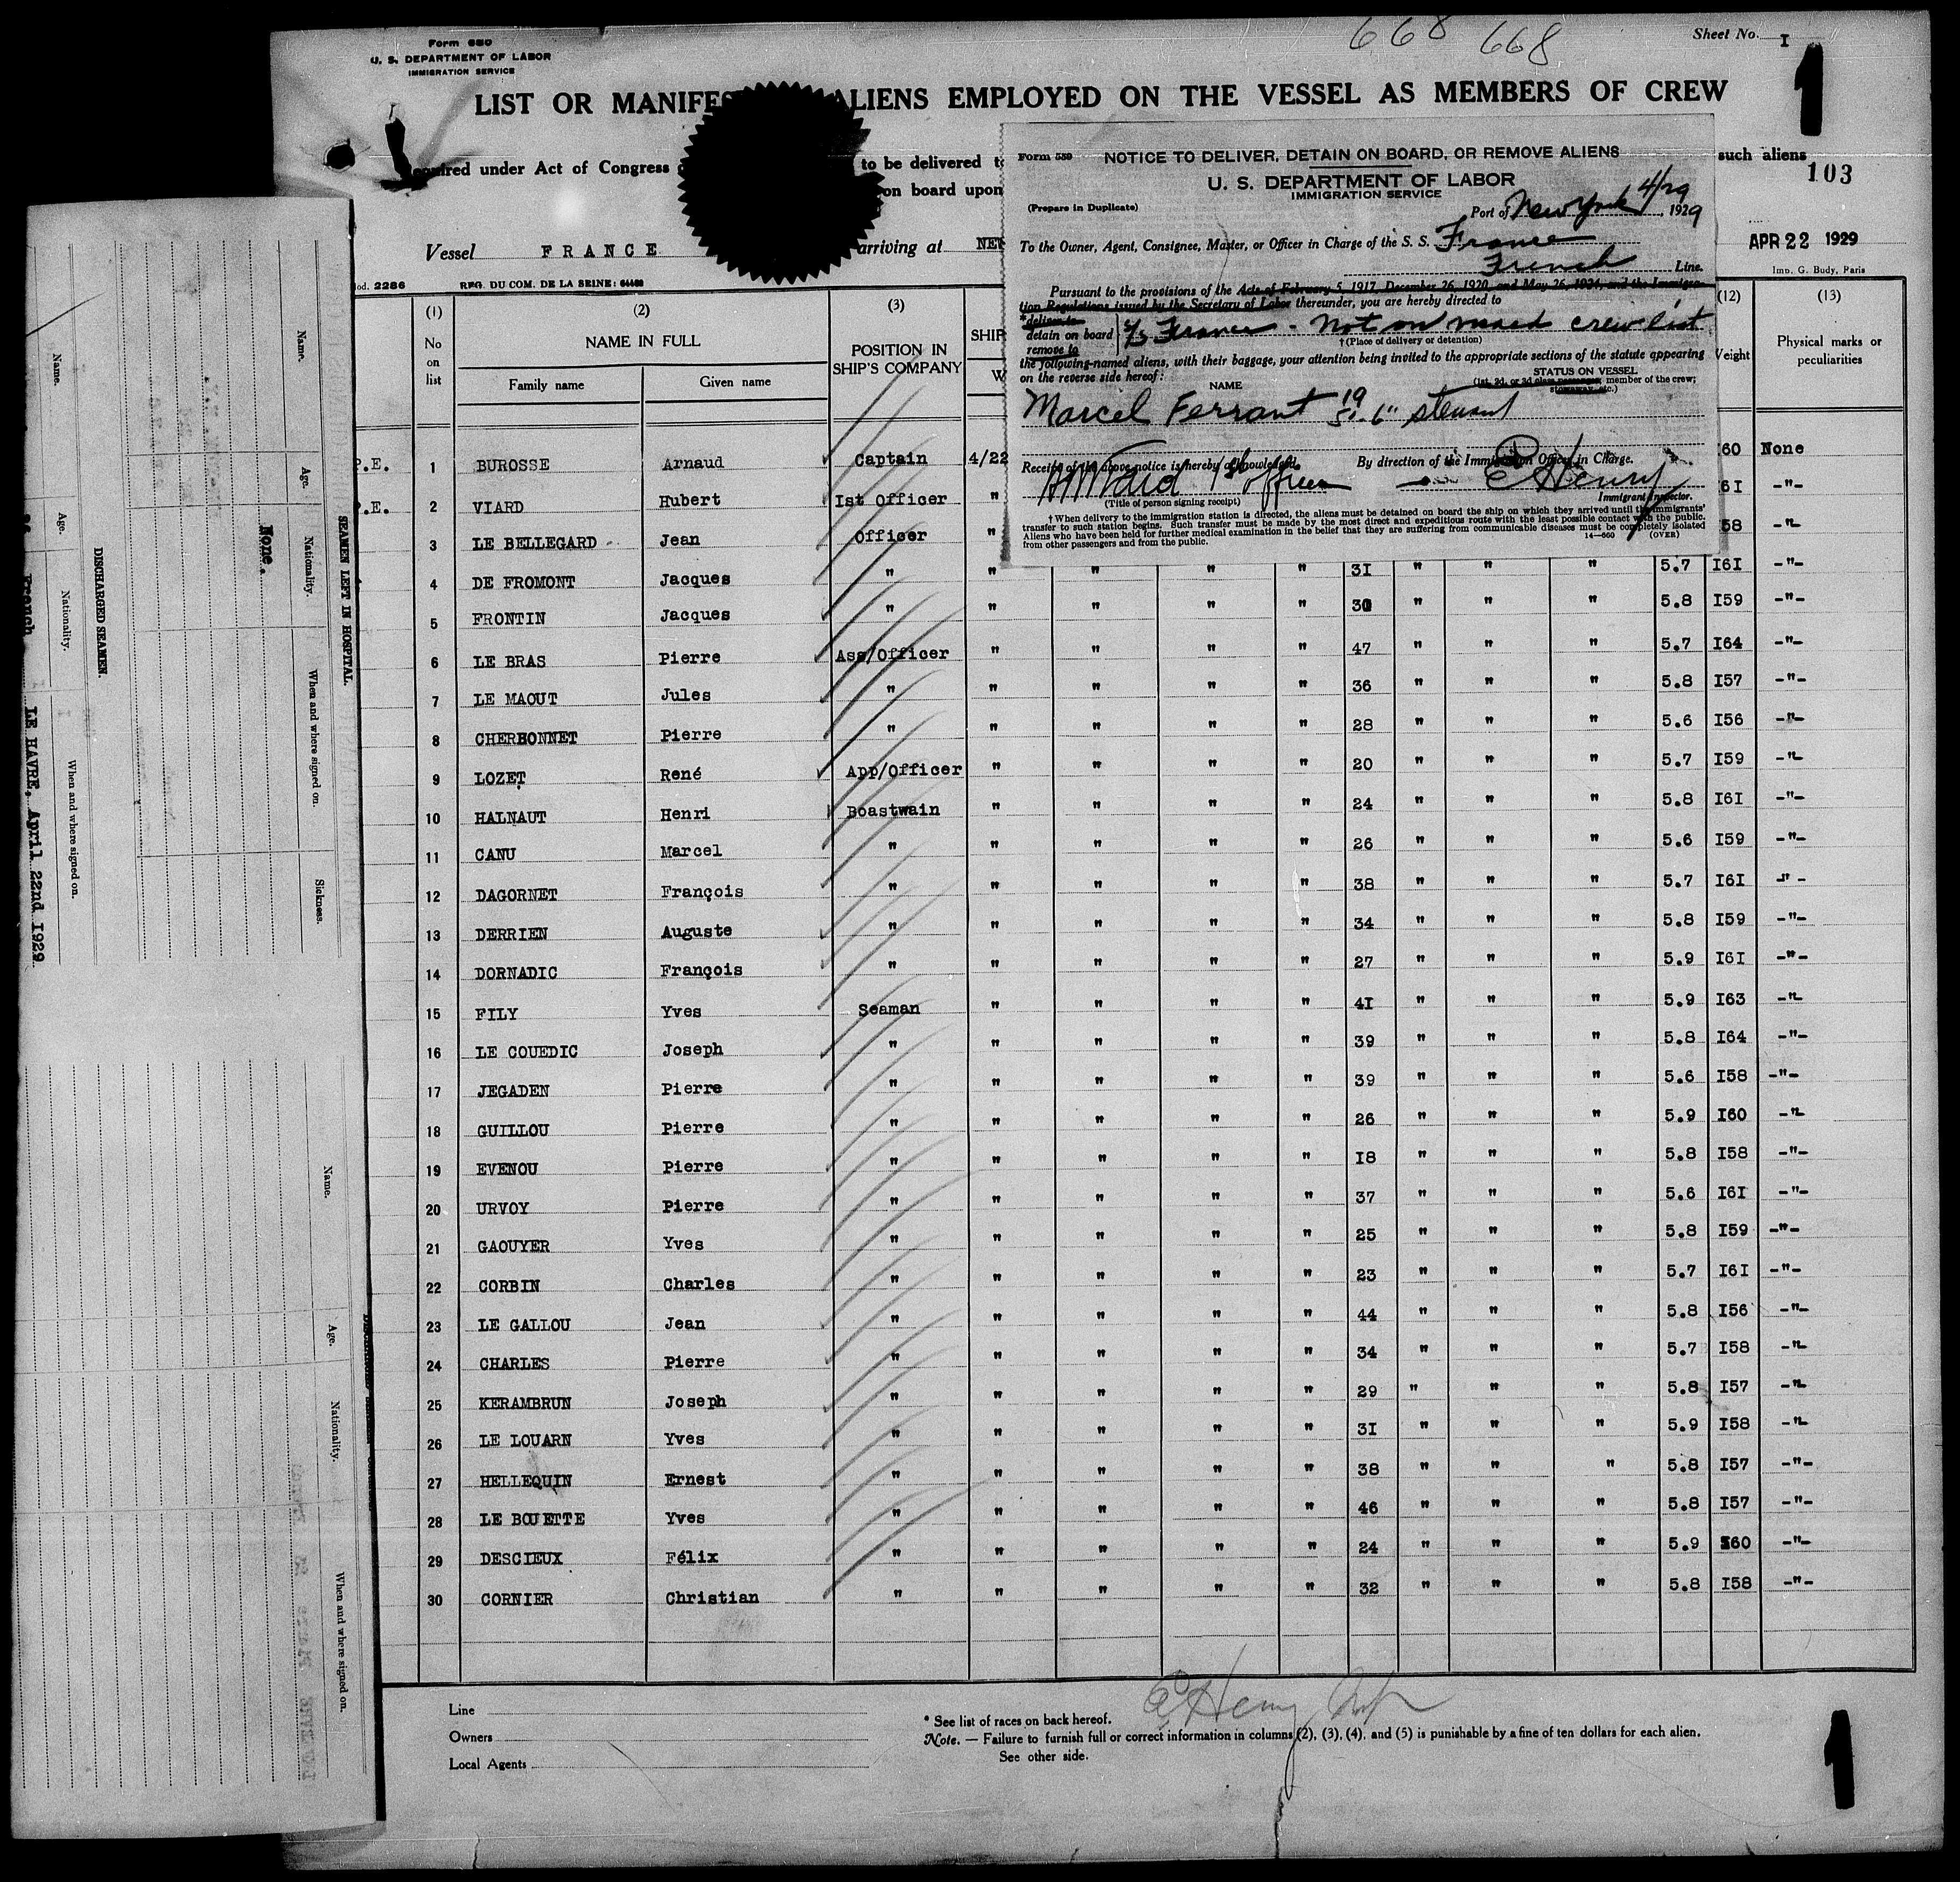 668 668
Form 680
U. S. DEPARTMENT OF LABOR
IMMIGRATION SERVICE
Sheet No. I
1
LIST OR MANIFES ALIENS EMPLOYED ON THE VESSEL AS MEMBERS OF CREW
quired under Act of Congress to be delivered t such aliens
on board upon
103
Vessel FRANCE arriving at NEW
APR 22 1929
Imp. G. Budy, Paris
Mod. 2286 REG. DU COM. DE LA SEINE:
Form 559 NOTICE TO DELIVER, DETAIN ON BOARD, OR REMOVE ALIENS
U. S. DEPARTMENT OF LABOR
IMMIGRATION SERVICE
(Prepare in Duplicate)
Port of New York 4/29, 1929
To the Owner, Agent, Consignee, Master, or Officer in Charge of the S. S. France
French Line.
Pursuant to the provisions of the Acts of February 5, 1917, December 26, 1920, and May 26, 1924, and the Immigra-
tion Regulations issued by the Secretary of Labor thereunder, you are hereby directed to
*deliver to
detain on board
remove to
S/S France - Not on visaed crew list
†(Place of delivery or detention)
the following-named aliens, with their baggage, your attention being invited to the appropriate sections of the statute appearing
on the reverse side hereof:
NAME
STATUS ON VESSEL
(1st, 2d, or 3d class passenger, member of the crew;
stowaway, etc.)
Marcel Ferrant 19 5' 6" steward
Receipt of the above notice is hereby acknowledged.
By direction of the Immigration Officer in Charge.
Ward 1st officer
E Henry
(Title of person signing receipt)
Immigrant Inspector.
†When delivery to the immigration station is directed, the aliens must be detained on board the ship on which they arrived until the immigrants'
transfer to such station begins. Such transfer must be made by the most direct and expeditious route with the least possible contact with the public.
Aliens who have been held for further medical examination in the belief that they are suffering from communicable diseases must be completely isolated
from other passengers and from the public.
14—660 (OVER)
(1) (2) (3) (12) (13)
No on list
NAME IN FULL
Family name Given name
POSITION IN SHIP'S COMPANY
SHIP
W
Weight
Physical marks or peculiarities
P.E. 1 BUROSSE Arnaud Captain 4/22 I60 None
P.E. 2 VIARD Hubert Ist Officer " 6I -"-
3 LE BELLEGARD Jean Officer " 58 -"-
4 DE FROMONT Jacques " " " " " 3I " " " 5.7 I6I -"-
5 FRONTIN Jacques " " " " " 30 " " " 5.8 I59 -"-
6 LE BRAS Pierre Ass/Officer " " " " 47 " " " 5.7 I64 -"-
7 LE MAOUT Jules " " " " " 36 " " " 5.8 I57 -"-
8 CHERBONNET Pierre " " " " " 28 " " " 5.6 I56 -"-
9 LOZET René App/Officer " " " " 20 " " " 5.7 I59 -"-
10 HALNAUT Henri Boastwain " " " " 24 " " " 5.8 I6I -"-
11 CANU Marcel " " " " " 26 " " " 5.6 I59 -"-
12 DAGORNET François " " " " " 38 " " " 5.7 I6I -"-
13 DERRIEN Auguste " " " " " 34 " " " 5.8 I59 -"-
14 DORNADIC François " " " " " 27 " " " 5.9 I6I -"-
15 FILY Yves Seaman " " " " 4I " " " 5.9 I63 -"-
16 LE COUEDIC Joseph " " " " " 39 " " " 5.8 I64 -"-
17 JEGADEN Pierre " " " " " 39 " " " 5.6 I58 -"-
18 GUILLOU Pierre " " " " " 26 " " " 5.9 I60 -"-
19 EVENOU Pierre " " " " " I8 " " " 5.8 I58 -"-
20 URVOY Pierre " " " " " 37 " " " 5.6 I6I -"-
21 GAOUYER Yves " " " " " 25 " " " 5.8 I59 -"-
22 CORBIN Charles " " " " " 23 " " " 5.7 I6I -"-
23 LE GALLOU Jean " " " " " 44 " " " 5.8 I56 -"-
24 CHARLES Pierre " " " " " 34 " " " 5.7 I58 -"-
25 KERAMBRUN Joseph " " " " " 29 " " " 5.8 I57 -"-
26 LE LOUARN Yves " " " " " 3I " " " 5.9 I58 -"-
27 HELLEQUIN Ernest " " " " " 38 " " " 5.8 I57 -"-
28 LE BOUETTE Yves " " " " " 46 " " " 5.8 I57 -"-
29 DESCIEUX Félix " " " " " 24 " " " 5.9 I60 -"-
30 CORNIER Christian " " " " " 32 " " " 5.8 I58 -"-
E Henry Insp
Line
Owners
Local Agents
* See list of races on back hereof.
Note. — Failure to furnish full or correct information in columns (2), (3), (4), and (5) is punishable by a fine of ten dollars for each alien.
See other side.
1
SEAMEN LEFT IN HOSPITAL.
Name. Age. Nationality. When and where signed on. Sickness.
None.
DISCHARGED SEAMEN.
Name. Age. Nationality. When and where signed on.
French LE HAVRE, April 22nd I929
Name. Age. Nationality. When and where signed on.